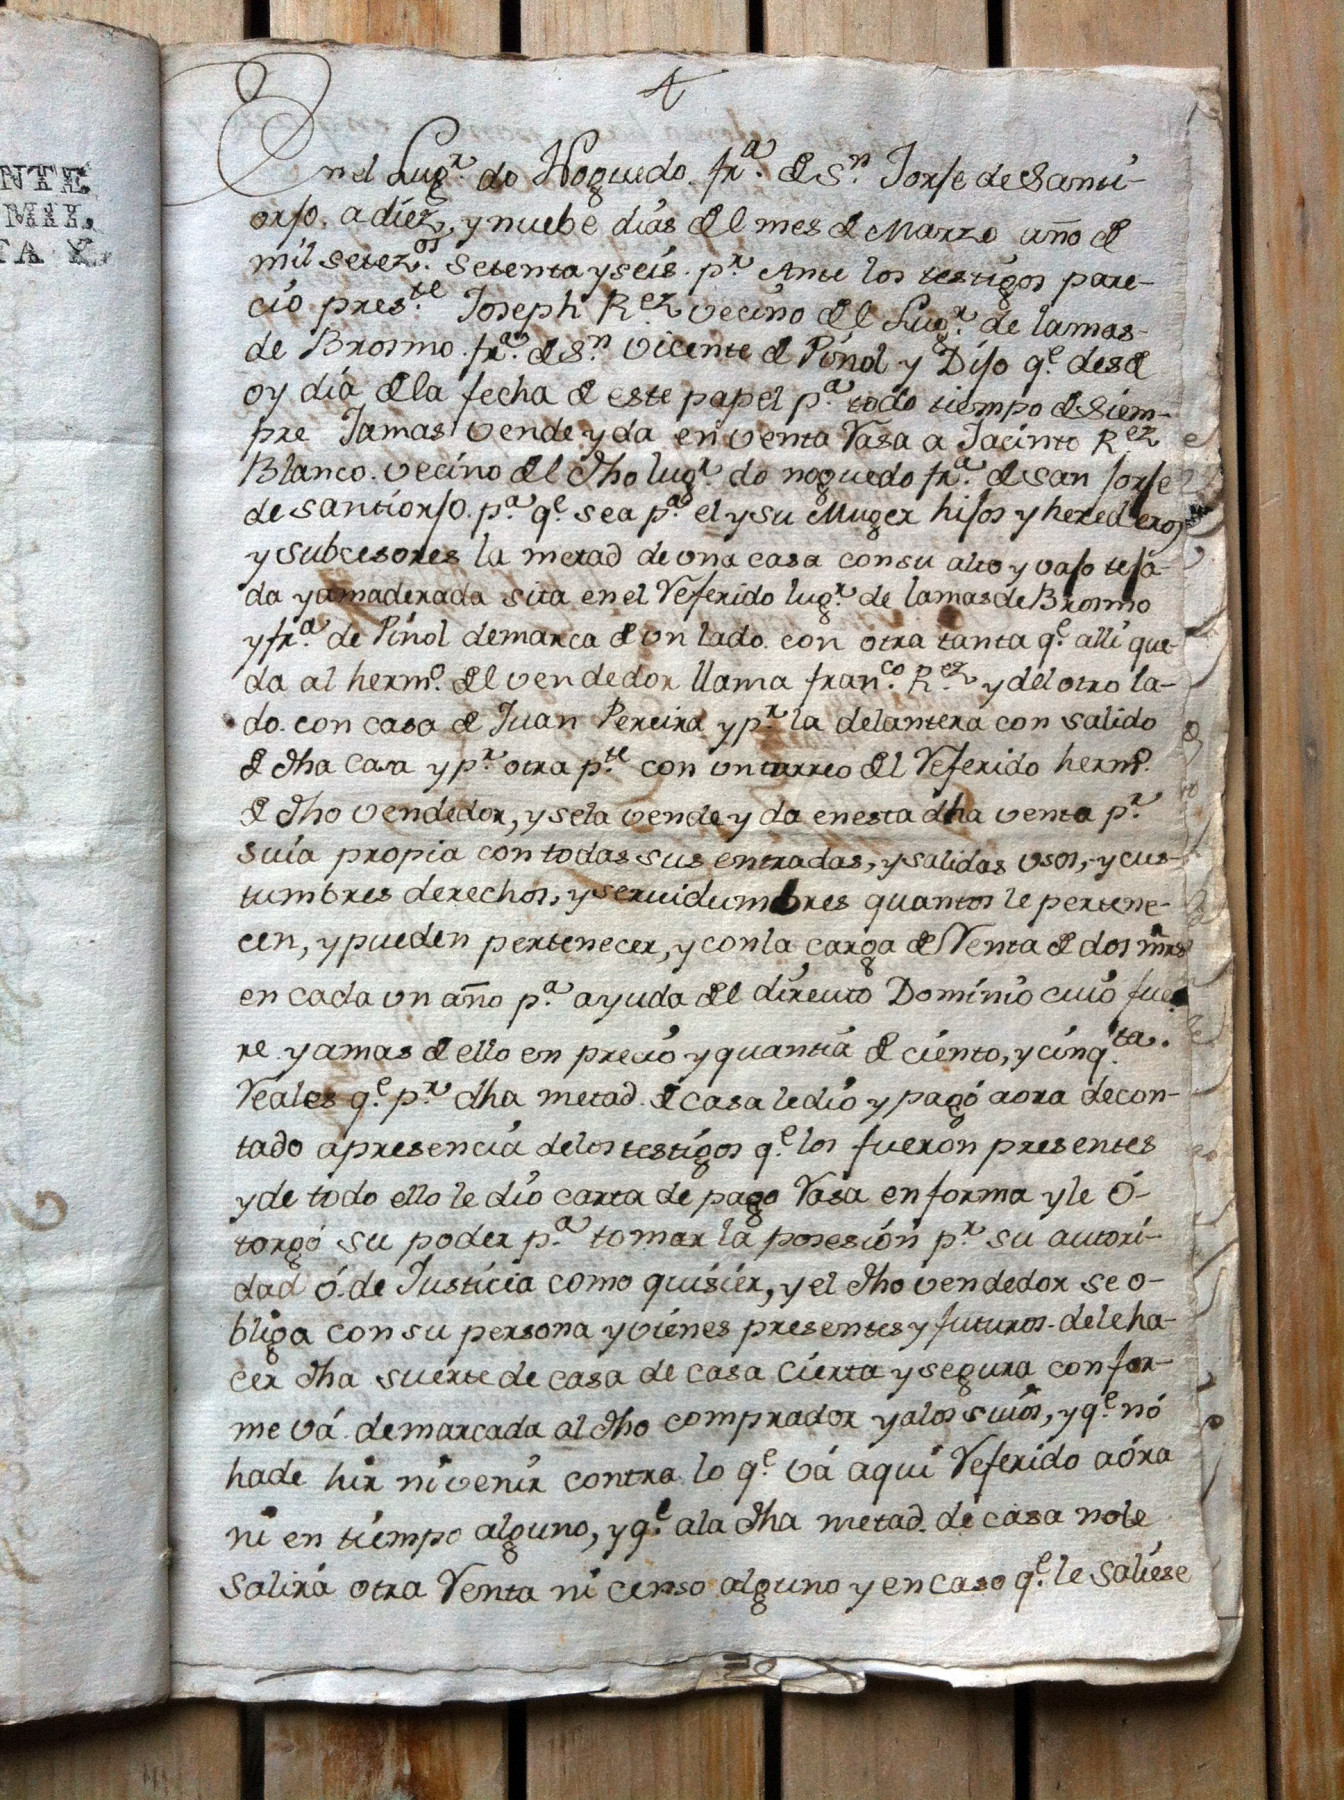 NTE
MIL
TA Y
En el Lugr. do Noguedo. fra. de Sn. Jorje de Santi-
orjo. a diez, y nuebe dias del mes de Marzo año de
mil setezos. setenta y seis. pr. Ante los testigos pare-
cio preste. Joseph Rez. vecino del Lugr. de lamas-
de Brosmo. fra. de Sn. Vicente de Pinol y Dijo qe. desde
oy dia de la fecha de este papel pa. todo tiempo de siem-
pre Jamas vende y da en venta Rasa a Jacinto Rez
Blanco. vecino del dho lugr. do noguedo fra. de san Jorje
de santiorjo. pa. qe. sea pa. el y su Muger hijos y herederos
y subcesores la metad de una casa con su alto y vajo teja-
da y amaderada sita en el Referido lugr. de lamas de Brosmo
y fra. de Pinol demarca de un lado. con otra tanta qe. alli que-
da al hermo. del vendedor llama franco. Rez. y del otro la-
do. con casa de Juan Pereira y pr. la delantera con salido
de dha Casa y pr. otra pte. con un curreo del Referido hermo.
de dho vendedor, y se la vende y da en esta dha venta pr.
suia propia con todas sus entradas, y salidas usos, y cus-
tumbres derechos, y seruidumbres quantos le pertene-
cen, y pueden pertenecer, y con la carga de Renta de dos mrs
en cada un año pa. ayuda del direuto Dominio cuio fue
re y amas de ello en precio y quantia de ciento, y cinqta.
Reales qe. pr. dha metad. de casa le dio y pagó aora de con-
tado a presencia de los testigos qe. los fueron presentes
y de todo ello le dio carta de pago Rasa en forma y le ó-
torgó su poder pa. tomar la posesión pr. su autori-
dad ó. de Justicia como quisier, y el dho vendedor se o-
bliga con su persona y vienes presentes y futuros. de le ha-
cer dha suerte de casa de casa cierta y segura confor-
me vá. demarcada al dho comprador y a los suios, y qe. nó
hade hir ni venir contra lo qe. vá aqui Referido aóra
ni en tiempo alguno, y qe. a la dha metad. de casa no le
salirá otra Renta ni censo alguno y en caso qe. le saliese